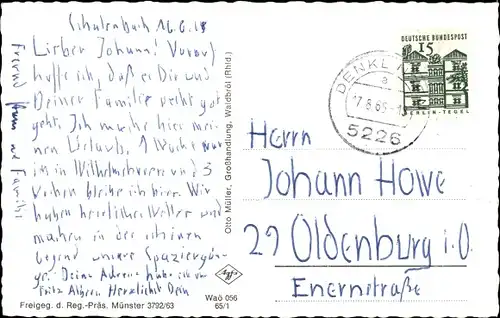 16.6.65
Lieber Johann! Vorauf
hoffe ich, daß es Dir und
Deiner Familie recht gut
geht. Ich mache hier mei-
nen Urlaub. 1 Woche war
ich in Wilhelmshaven und 3
Wochen bleibe ich hier. Wir
haben herrliches Wetter und
machen in der schönen
Gegend unsere Spaziergän-
ge. Deine Adresse habe ich von
Fritz Herzlichst Dein
Freund
und Familie
Freigeg. d. Reg.-Präs. Münster 3792/63
Otto Müller, Großhandlung, Waldbröl (Rhld.)
Agfa
Waö 056
65/1
DEUTSCHE BUNDESPOST
15
BERLIN-TEGEL
DENKL
a
17.6.65
5226
Herrn
Johann Howe
29 Oldenburg i.O.
Enernstraße